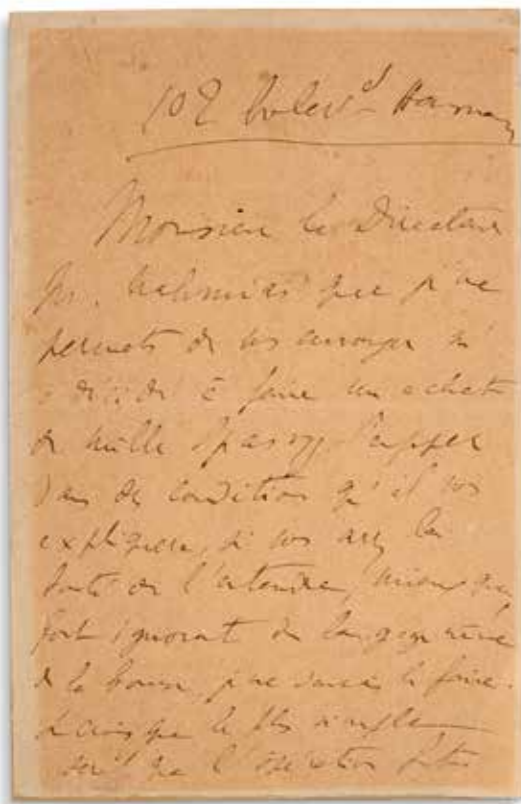 102 Boulevd Haussmann
Monsieur le Directeur
Mr. Nahmias que je me
permets de vous envoyer m'
a décidé à faire un achat
de mille Spassky Copper
dans des conditions qu'il vous
expliquera, si vous avez la
bonté de l'entendre, mieux que
fort ignorant du langage même
de la bourse, je ne saurais le faire.
Je crois que le plus simple
serait que l'opération fût